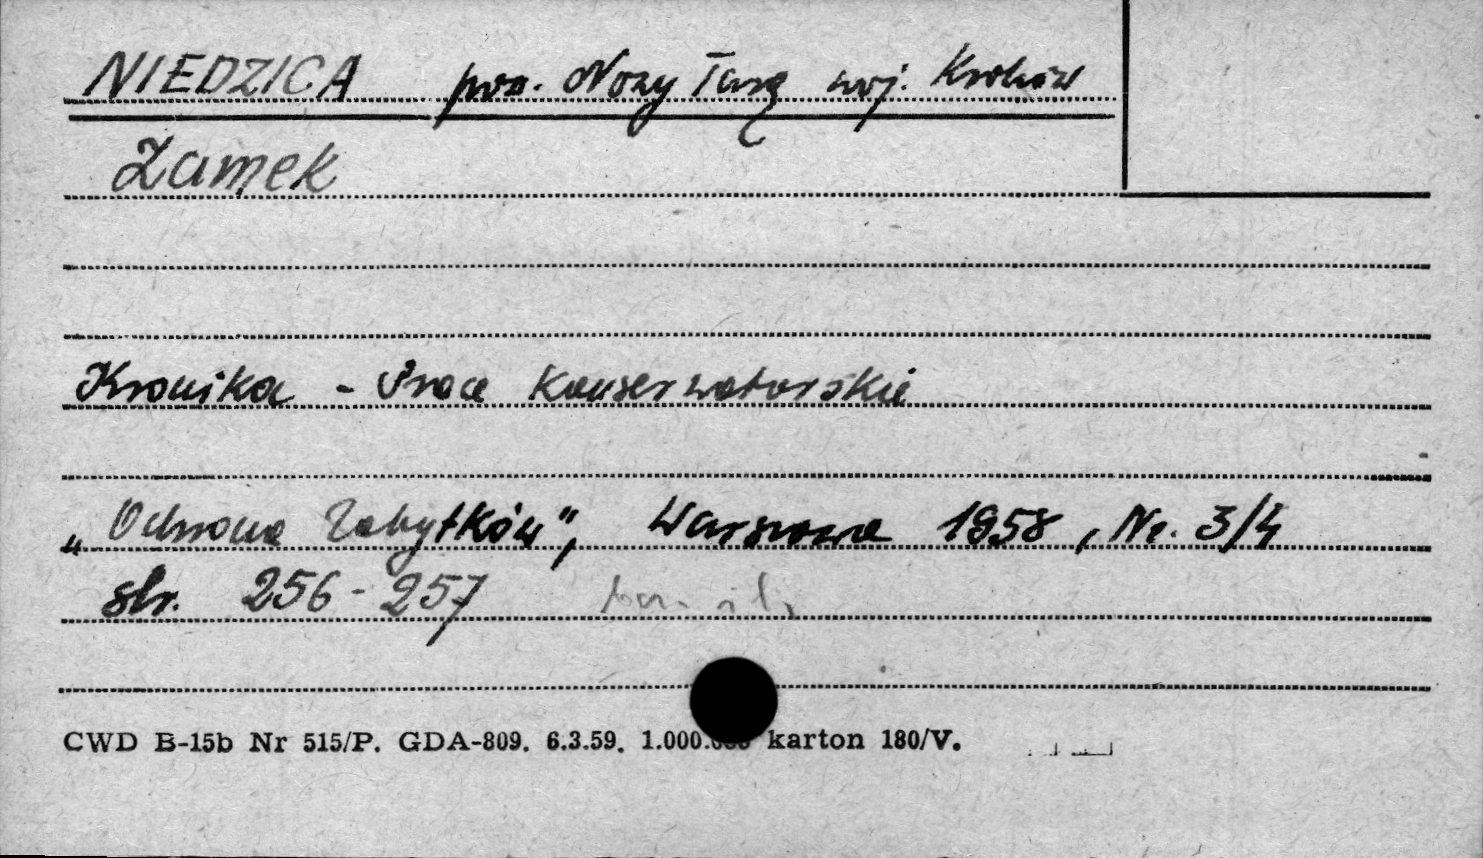 NIEDZICA pow. Nowy Targ woj. Kraków
Zamek
Kronika - Prace Konserwatorskie
„Ochrona Zabytków", Warszawa 1958, Nr. 3/4
str. 256-257
CWD B-15b Nr 515/P. GDA-809. 6.3.59. karton 180/V.